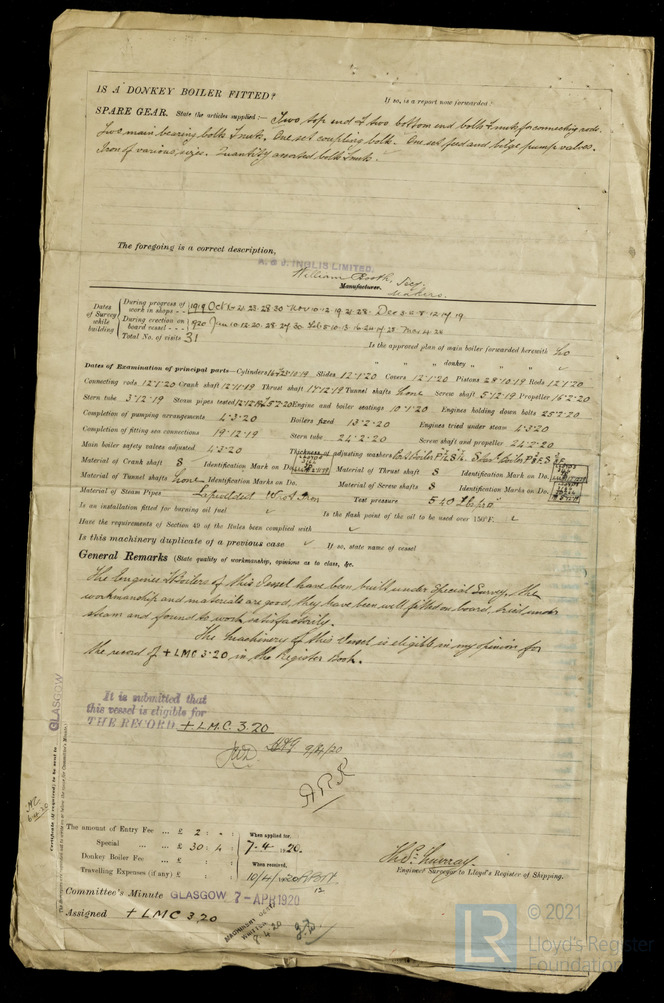 IS A DONKEY BOILER FITTED?
If so, is a report now forwarded?
SPARE GEAR. State the articles supplied:— Two top end & two bottom end bolts & nuts for connecting rods.
Two main bearing bolts & nuts. One set coupling bolts. One set feed and bilge pump valves.
Iron of various sizes. Quantity assorted bolts & nuts.
The foregoing is a correct description,
A. & J. INGLIS LIMITED.
William Booth, Secy
Manufacturer.
Dates of Survey while building
During progress of work in shops - - 1919 Oct 21. 23. 28. 30 Nov 10. 12. 19. 21. 28. Dec 3. 5. 8. 12. 17. 19.
During erection on board vessel - - - 1920 Jan 10. 12. 20. 28. 27. 30 Feb 5. 10. 13. 16. 24. 17. 25. Mar 4. 26
Total No. of visits 31
Is the approved plan of main boiler forwarded herewith No
" " " donkey " " "
Dates of Examination of principal parts—Cylinders 23.10.19 Slides 12.1.20 Covers 12.1.20 Pistons 28.10.19 Rods 12.1.20
Connecting rods 12.1.20 Crank shaft 12.11.19 Thrust shaft 17.12.19 Tunnel shafts None Screw shaft 5.12.19 Propeller 16.2.20
Stern tube 3.12.19 Steam pipes tested Engine and boiler seatings 10.1.20 Engines holding down bolts 25.2.20
Completion of pumping arrangements 4.3.20 Boilers fixed 13.2.20 Engines tried under steam 4.3.20
Completion of fitting sea connections 19.12.19 Stern tube 24.2.20 Screw shaft and propeller 24.2.20
Main boiler safety valves adjusted 4.3.20 Thickness of adjusting washers
Material of Crank shaft S Identification Mark on Do. Material of Thrust shaft S Identification Mark on Do.
Material of Tunnel shafts None Identification Marks on Do. Material of Screw shafts S Identification Marks on Do.
Material of Steam Pipes Lapwelded W. Iron Test pressure 540 lbs per □"
Is an installation fitted for burning oil fuel ✓ Is the flash point of the oil to be used over 150°F. ✓
Have the requirements of Section 49 of the Rules been complied with ✓
Is this machinery duplicate of a previous case ✓ If so, state name of vessel
General Remarks (State quality of workmanship, opinions as to class, &c.
The Engines & Boilers of this Vessel have been built under Special Survey, the
workmanship and materials are good, they have been well fitted on board, tried under
steam and found to work satisfactorily.
The Machinery of this Vessel is eligible in my opinion for
the record of + LMC 3.20 in the Register Book.
GLASGOW
Certificate (if required) to be sent to
It is submitted that
this vessel is eligible for
THE RECORD + L.M.C. 3.20
9/4/20
A.R.R
The amount of Entry Fee ... £ 2 : - :
Special ... £ 30 : 4 :
Donkey Boiler Fee ... £ : :
Travelling Expenses (if any) £ : :
When applied for,
7-4-1920.
When received,
10/4/1920
12
Thos. Murray
Engineer Surveyor to Lloyd's Register of Shipping.
Committee's Minute GLASGOW 7-APR 1920
Assigned + LMC 3.20
MACHINERY
WRITTEN
8.4.20
LR
© 2021
Lloyd's Register
Foundation